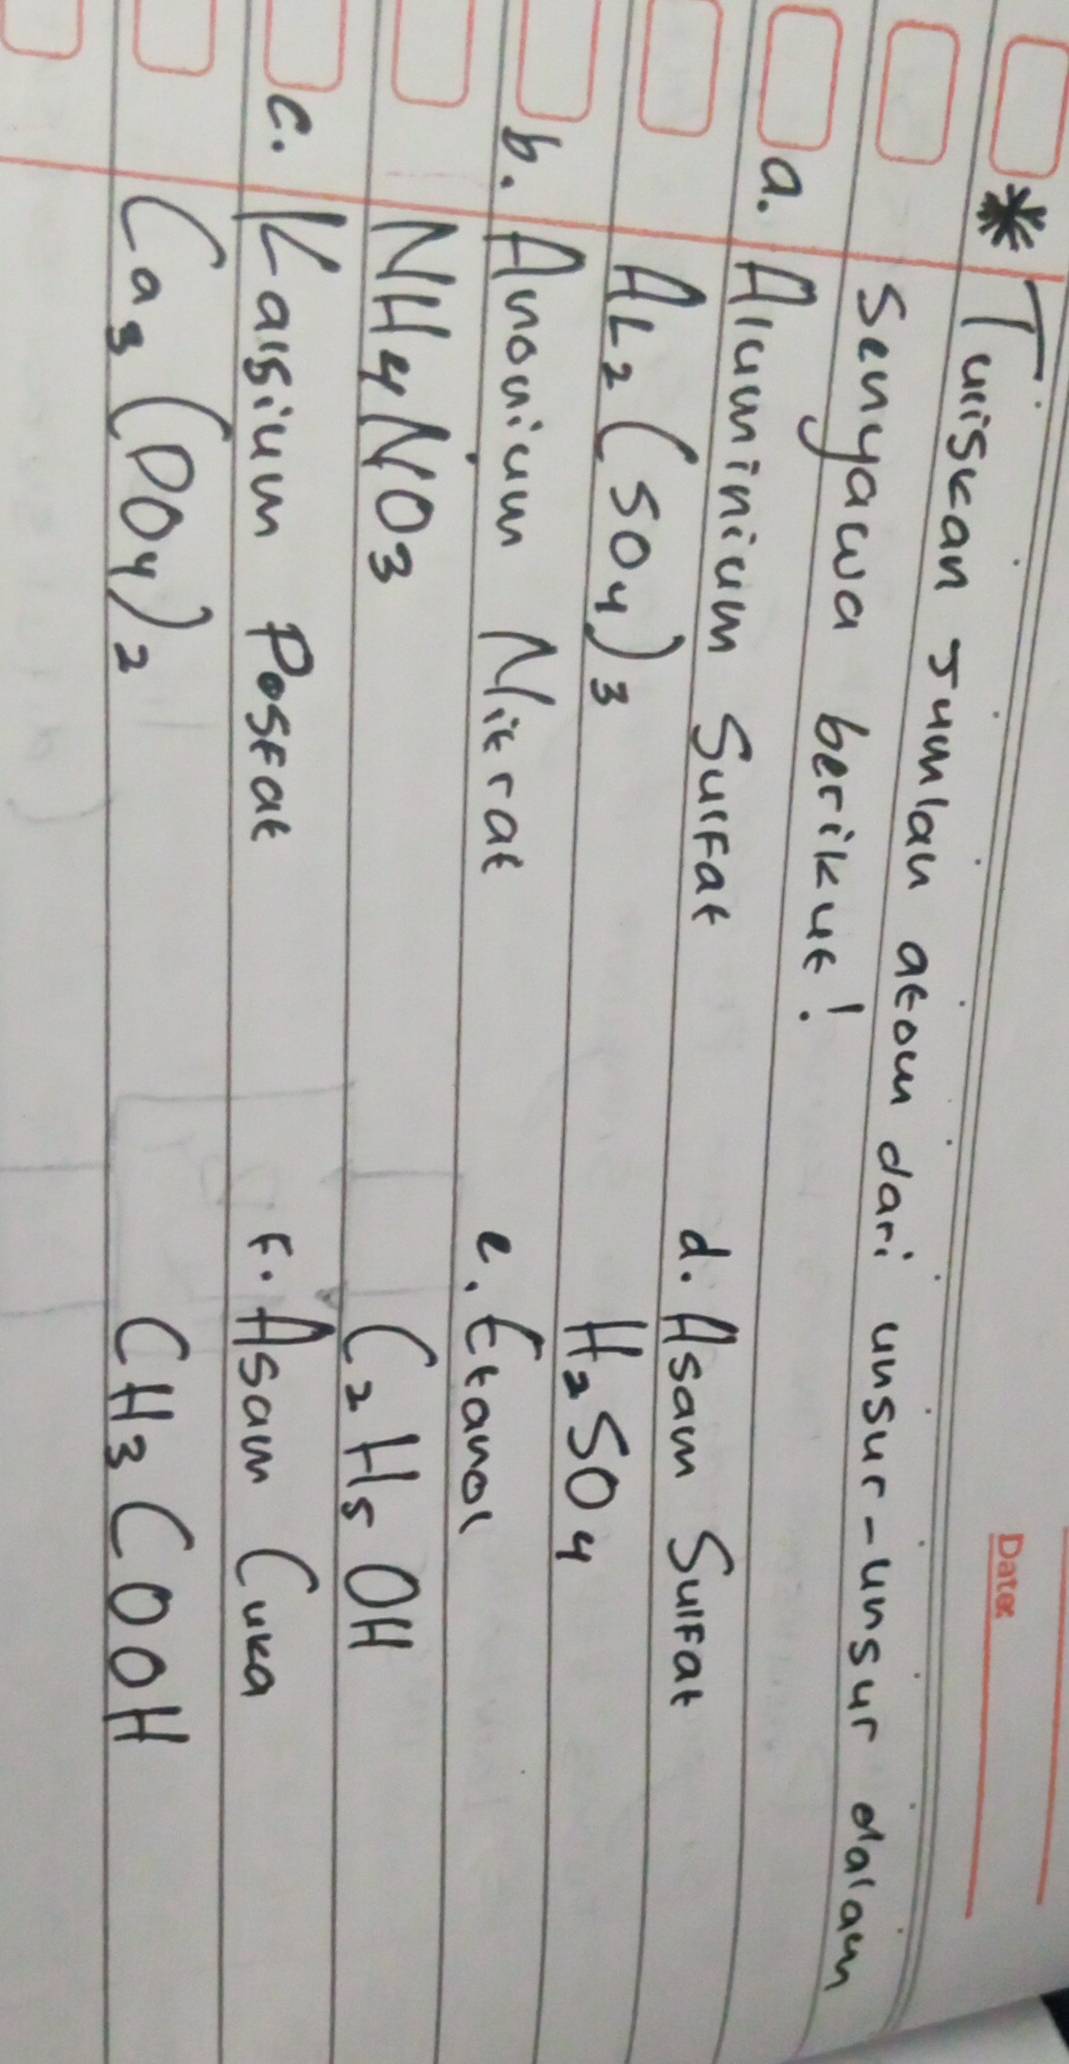 Date:
* Tuliskan Jumlah atom dari unsur-unsur dalam
senyawa berikut!
a. Aluminium Sulfat
AL₂(SO₄)₃
b. Amonium Nitrat
NH₄NO₃
c. Kalsium Posfat
Ca₃(PO₄)₂
d. Asam Sulfat
H₂SO₄
e. Etanol
C₂H₅OH
F. Asam Cuka
CH₃COOH